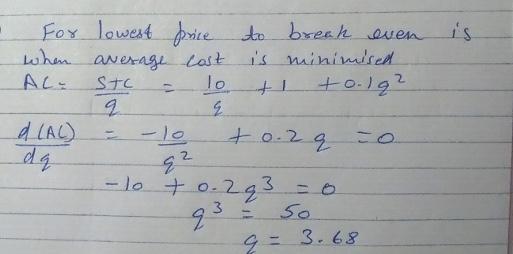 For lowest price to break even is
when average cost is minimised
AC = STC/q = 10/q + 1 + 0.1q²
d(AC)/dq = -10/q² + 0.2q = 0
-10 + 0.2q³ = 0
q³ = 50
q = 3.68